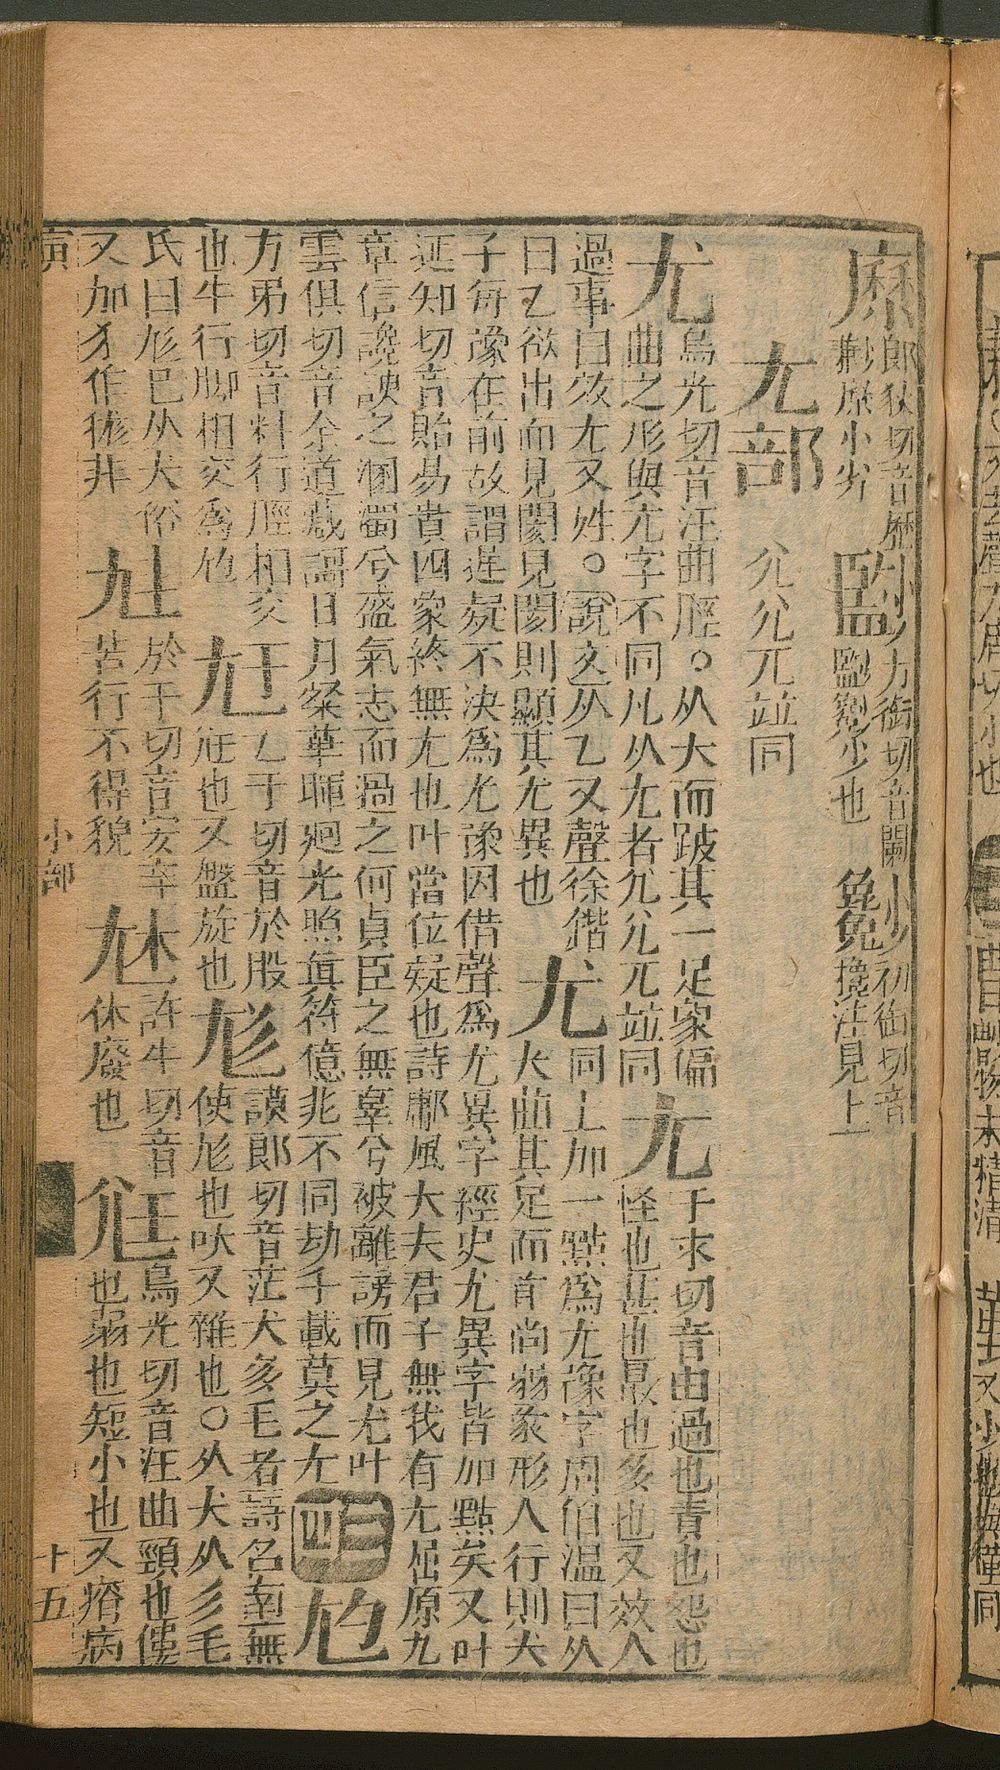 郎狄切音歷
尞小劣
力銜切音闌
少也
初銜切音
攙注見上
尢部 尣允兀並同
尢 烏光切音汪曲脛○从大而跛其一足象偏
曲之形與亢字不同凡从尢者尣允兀並同
尤 于求切音由過也責也怨也
怪也甚也最也多也又效人
過事曰效尤又姓○說文从乙又聲徐鍇
曰乙欲出而見閡見閡則顯其尤異也
尢 同上加一點爲尤豫字周伯溫曰从
大曲其足而首尚物象形人行則犬
子每豫在前故謂遲疑不決爲尤豫因借聲爲尤異字經史尤異字皆加點矣又叶
延知切音貽易賁四象終無尤也叶當位疑也詩鄘風大夫君子無我有尤屈原九
章信讒諛之溷濁兮盛氣志而過之何貞臣之無辠兮被離謗而見尤叶
雲俱切音余道藏謌日月粲華暉廻光照眞符億兆不同劫千載莫之尤
三四
尥 力弔切音料行脛相交
也牛行脚相交爲尥
尪 乙于切音於股
尪也又盤旋也
尨 謨郎切音茫犬多毛者詩召南無
使尨也吠又雜也○从犬从彡毛
氏曰尨已从犬俗
又加犭作狵非
於干切音安𡴘
苦行不得貌
許牛切音
休廢也
尪 烏光切音汪曲頸也僂
也弱也短小也又瘠病
寅
小部
十五